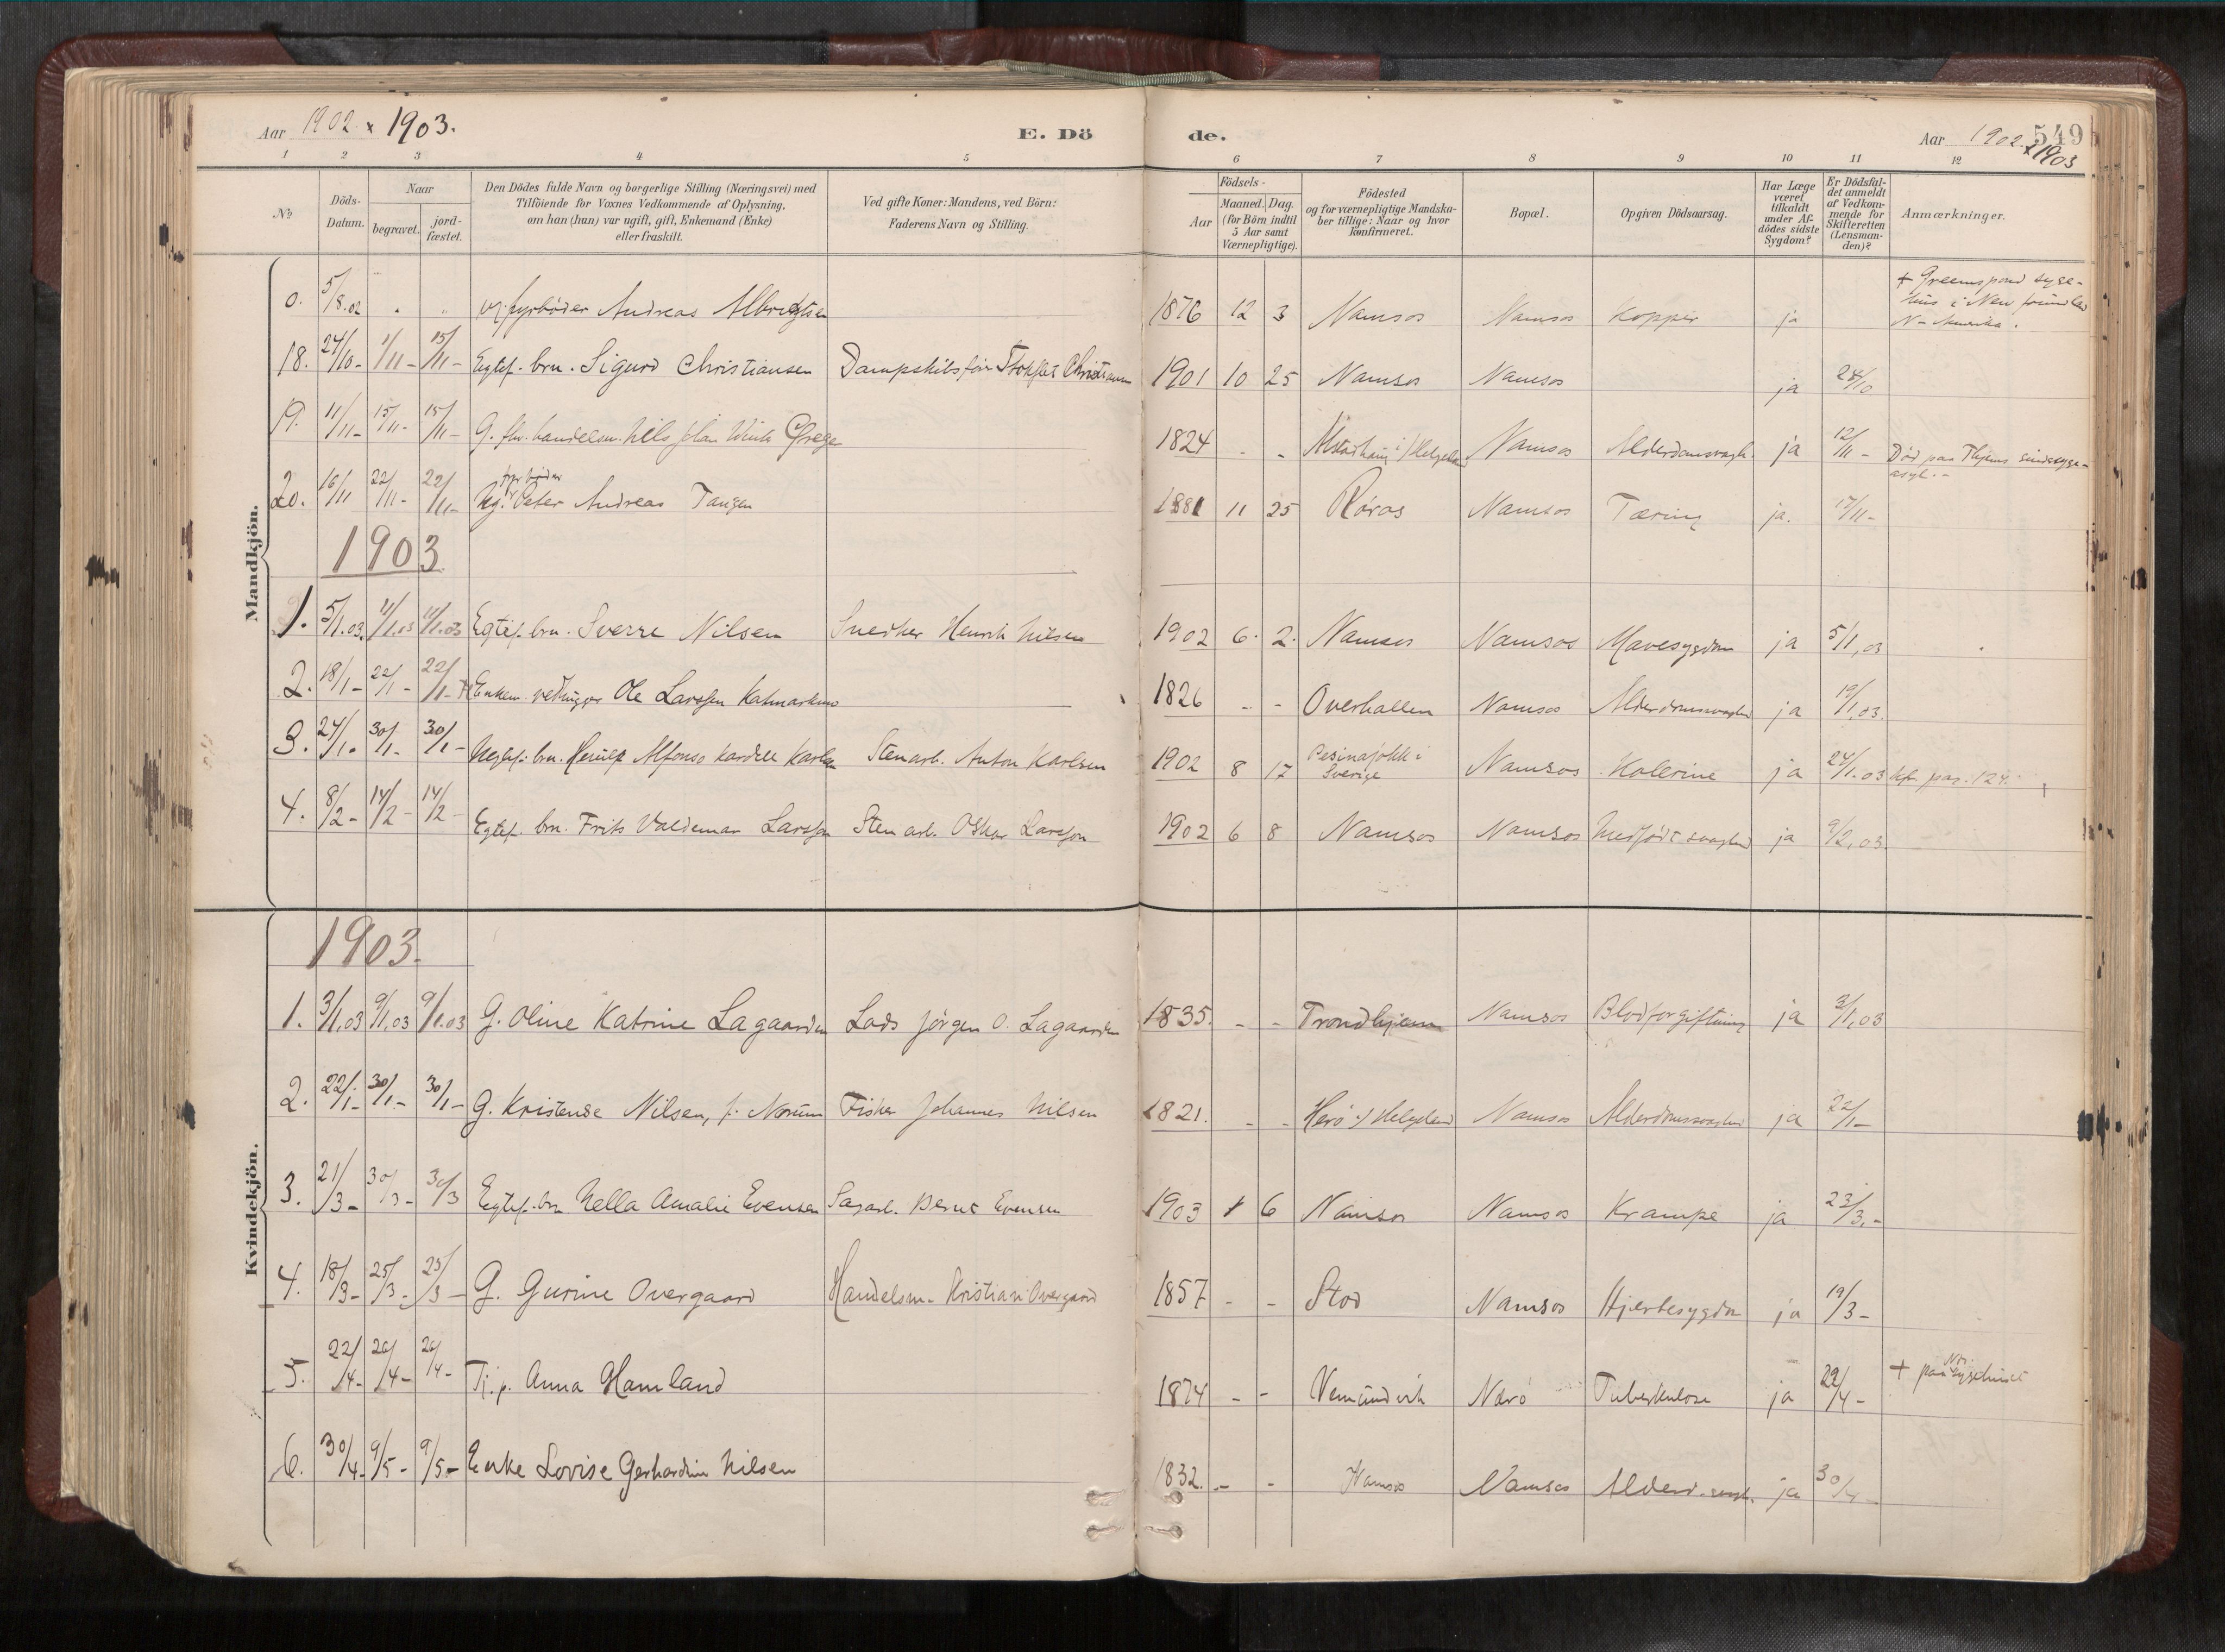 Aar 1902 x 1903.
E. Dö
de.
Aar 1902. x 1903
549
1 2 3 4 5 6 7 8 9 10 11 12
No
Döds-Datum.
Naar
begravet.
jord-fæstet.
Den Dödes fulde Navn og borgerlige Stilling (Næringsvei) med
Tilföiende for Voxnes Vedkommende af Oplysning,
om han (hun) var ugift, gift, Enkemand (Enke)
eller fraskilt.
Ved gifte Koner: Mandens, ved Börn:
Faderens Navn og Stilling.
Födsels-
Aar
Maaned. Dag.
(for Börn indtil
5 Aar samt
Værnepligtige).
Födested
og for værnepligtige Mandska-
ber tillige: Naar og hvor
konfirmeret.
Bopæl.
Opgiven Dödsaarsag.
Har Læge
været
tilkaldt
under Af-
dödes sidste
Sygdom?
Er Dödsfal-
det anmeldt
af Vedkom-
mende for
Skifteretten
(Lensman-
den)?
Anmærkninger.
Mandkjön.
0. 5/8.02 . . ug. fyrböder Andreas Albregtsen 1876 12 3 Namsos Namsos Kopper ja + Greenspond syge-
hus i New foundland
N-Amerika.
18. 24/10- 1/11- 15/11- Egtef. brn. Sigurd Christiansen Dampskibsförer Christiansen 1901 10 25 Namsos Namsos ja 28/10
19. 11/11- 15/11- 15/11- G. fhv. handelsm. Nils 1824 - - Alstahaug i Helgeland Namsos Alderdomssvagh. ja 12/11- Död paa Thjems sindssyge-
asyl.-
20. 16/11 22/11- 22/11- Ug. fyrböder Peter Andreas Tangen 1881 11 25 Röros Namsos Tæring ja. 17/11-
1903
1. 5/1.03. 11/1.03 11/1.03 Egtef. brn. Sverre Nilsen Snedker Henrik Nilsen 1902 6. 2. Namsos Namsos Mavesygdom ja 5/1.03
2. 18/1- 22/1- 22/1- Enkem. vedhugger Ole Larssen 1826 - - Overhallen Namsos Alderdomssvaghed ja 19/1.03.
3. 24/1. 30/1- 30/1- Uegtef. brn. Alfonso Karlsen Stenarb. Anton Karlsen 1902 8 17 Pesinajokk i
Sverige Namsos Kolerine ja 24/1.03
4. 8/2- 14/2- 14/2- Egtef. brn. Frits Valdemar Larsson Stenarb. Oskar Larsson 1902 6 8 Namsos Namsos Medfödt svaghed ja 9/2.03.
Kvindekjön.
1903.
1. 3/1.03 9/1.03 9/1.03 G. Oline Katrine Lagaarden Lods Jörgen O. Lagaarden 1835. - - Trondhjem Namsos Blodforgiftning ja 3/1.03
2. 22/1- 30/1- 30/1- G. Kristense Nilsen, f. Norum Fisker Johannes Nilsen 1821. - - Herö i/ Helgeland Namsos Alderdomssvaghed ja 22/1-
3. 21/3- 30/3- 30/3 Egtef. brn Nella Amalie Evensen Sagarb. Bernt Evensen 1903 1 6 Namsos Namsos Krampe ja 23/3.-
4. 18/3- 25/3- 25/3- G. Gurine Overgaard Handelsm. Kristian Overgaard 1857 - - Stod Namsos Hjertesygdom ja 19/3-
5. 22/4- 26/4- 26/4- Tj.p. Anna Hamland 1874 - - Vemundvik Nærö Tuberkulose ja 22/4- + paa Ns. sygehuset
6. 30/4- 9/5- 9/5- Enke Lovise Gerhardine Nilsen 1832. - - Namsos Namsos Alderd. svagh. ja 30/4-